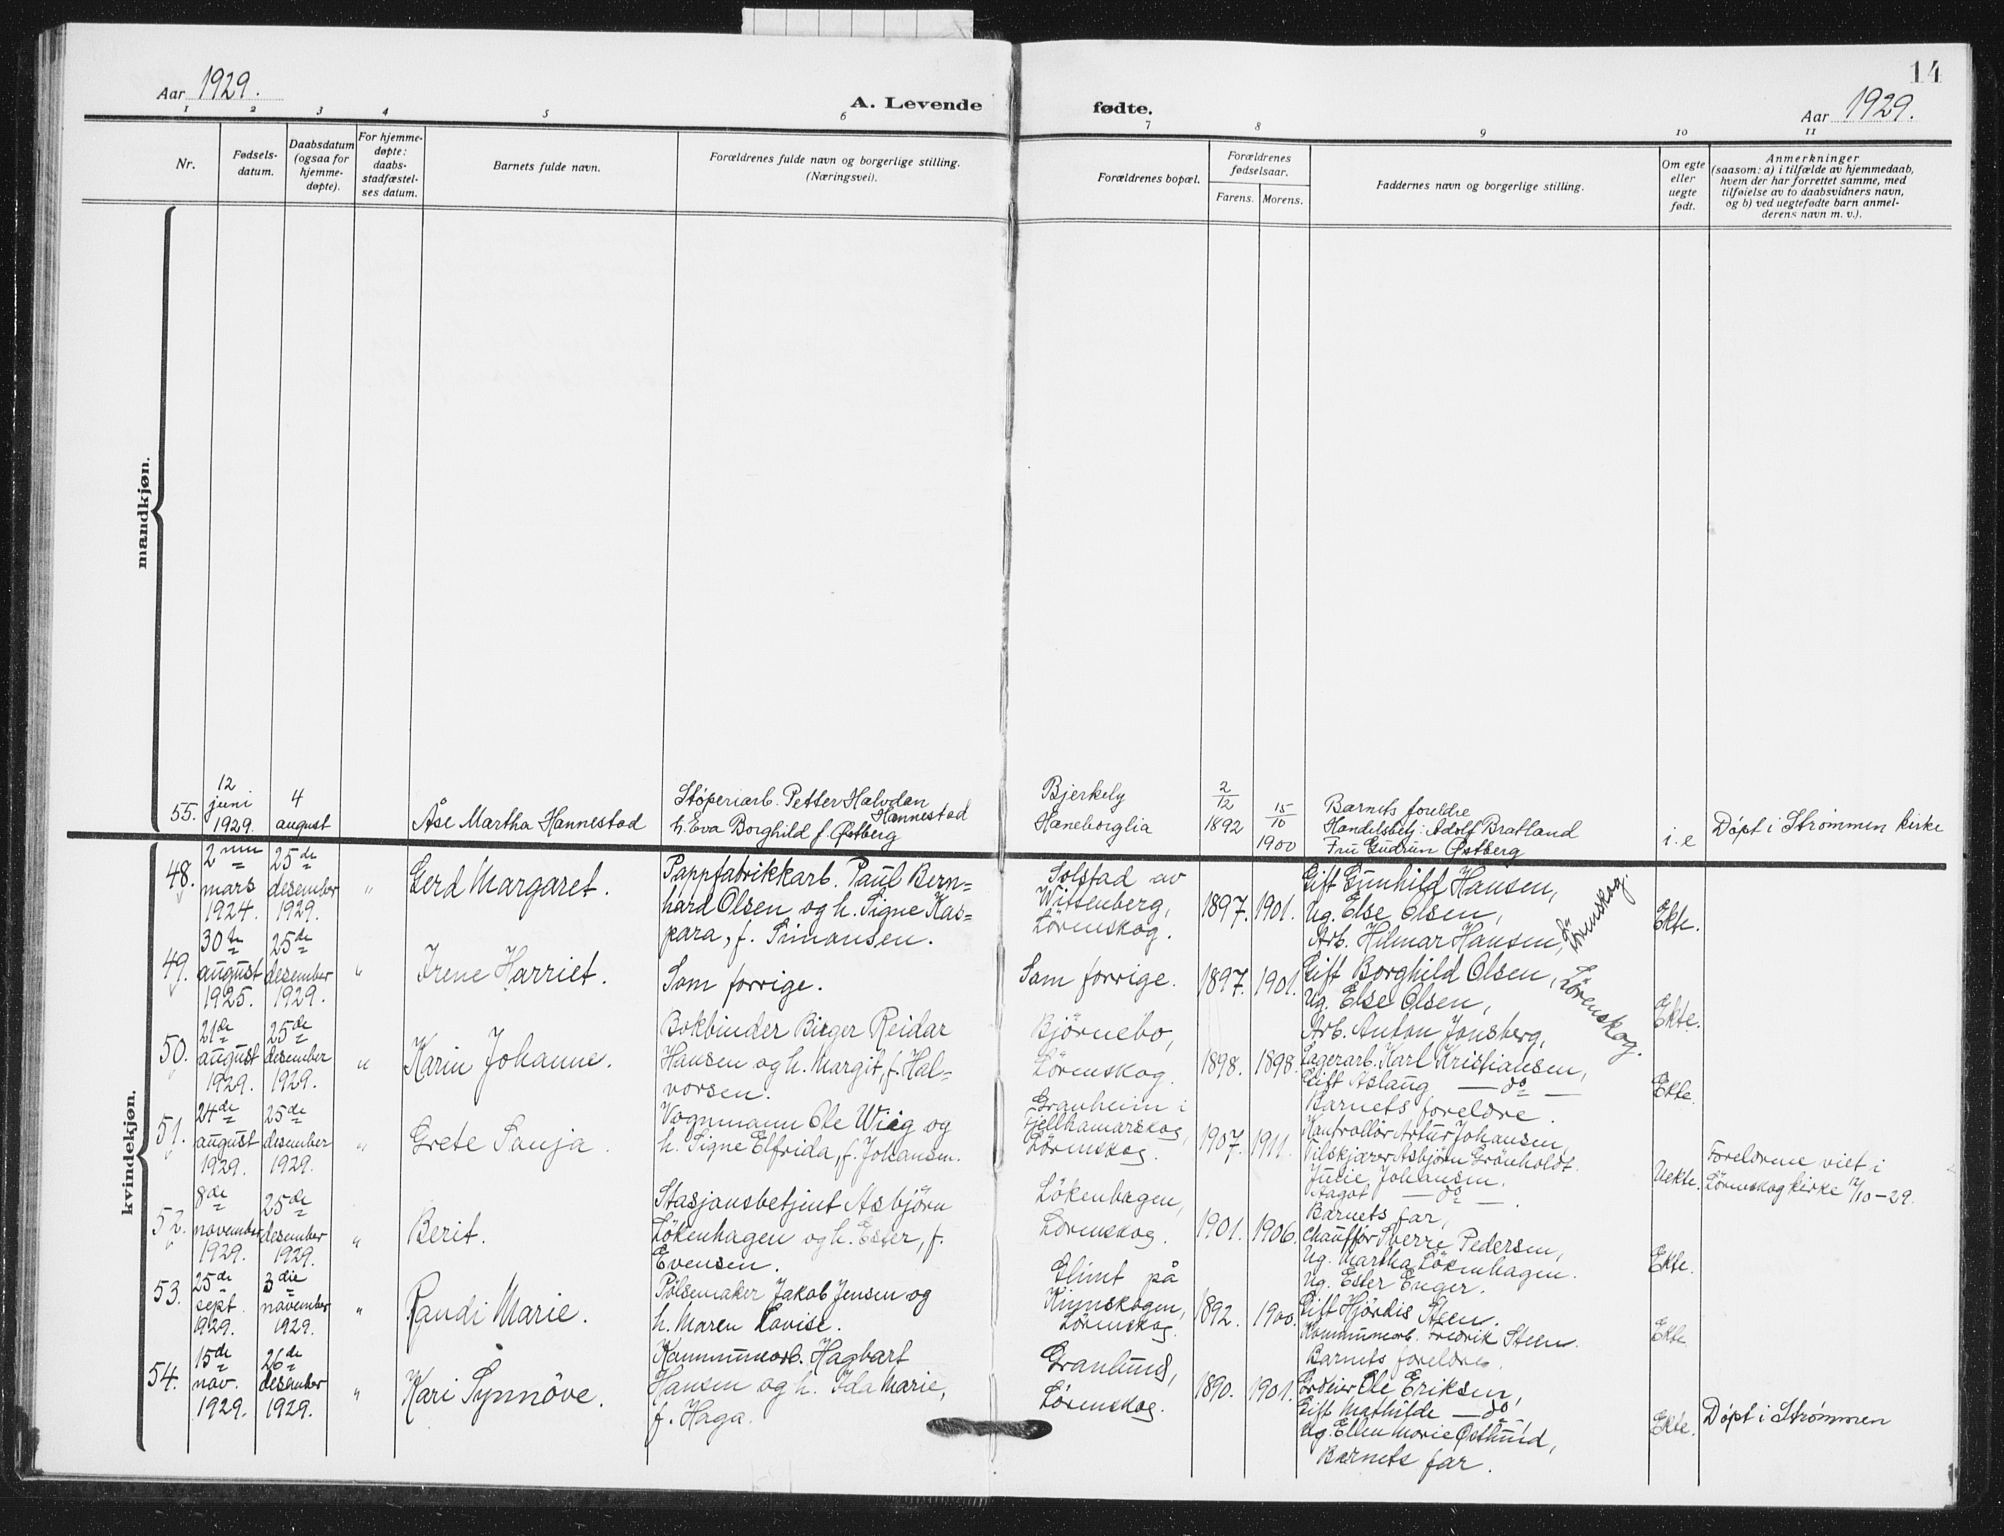 Aar 1929.
A. Levende fødte.
14
Aar 1929.
1 2 3 4 5 6 7 8 9 10 11
Nr.
Fødsels-
datum.
Daabsdatum
(ogsaa for
hjemme-
døpte).
For hjemme-
døpte:
daabs-
stadfæstel-
ses datum.
Barnets fulde navn.
Forældrenes fulde navn og borgerlige stilling.
(Næringsvei).
Forældrenes bopæl.
Forældrenes
fødselsaar.
Farens. Morens.
Faddernes navn og borgerlige stilling.
Om egte
eller
uegte
født.
Anmerkninger
(saasom: a) i tilfælde av hjemmedaab,
hvem der har forrettet samme, med
tilføielse av to daabsvidners navn,
og b) ved uegtefødte barn anmel-
derens navn m. v.).
mandkjøn.
55.
12
juni
1929.
4
august
Åse Martha Hannestad
Støperiarb. Petter Halvdan
Hannestad
h. Eva Borghild f. Østberg
Bjerkely
Haneborglia
2/12
1892
15/10
1900
Barnets foreldre
Handelsbetj. Adolf Bratland
Fru Gudrun Østberg
i. e
Døpt i Strømmen kirke
kvindekjøn.
48.
2nen
mars
1924.
25de
desember
1929.
"
Gerd Margaret.
Pappfabrikkarb. Paul Bern=
hard Olsen og h. Signe Kas-
para, f. Simonsen.
Solstad av
Wittenberg,
Lörenskog.
1897.
1901.
Gift Gunhild Hansen,
Ug. Else Olsen,
Arb. Hilmar Hansen,
Lörenskog.
Ekte.
49.
30te
august
1925.
25de
desember
1929.
"
Irene Harriet.
Som forrige.
Som forrige.
1897.
1901.
Gift Borghild Olsen,
Ug. Else Olsen,
Arb. Anton Jonsberg,
Lörenskog.
Ekte.
50.
21de
august
1929.
25de
desember
1929.
"
Karin Johanne.
Bokbinder Birger Reidar
Hansen og h. Margit, f. Hal-
vorsen.
Bjørnebo,
Lörenskog.
1898.
1898.
Lagerarb. Karl Kristiansen,
Gift Aslaug — do —
Barnets foreldre.
Ekte.
51.
24de
august
1929.
25de
desember
1929.
"
Grete Sonja.
Vognmann Ole Wiig og
h. Signe Elfrida, f. Johansen.
Granheim i
Fjellhamarskog,
Lörenskog.
1907.
1911.
Kontrollör Artur Johansen,
Filskjærer Asbjörn Grönholdt.
Julie Johansen.
Aagot — do —.
Uekte.
Foreldrene viet i
Lörenskog kirke 12/10 - 29.
52.
8de
november
1929.
25de
desember
1929.
"
Berit.
Stasjonsbetjent Asbjörn
Lökenhagen og h. Ester, f.
Evensen.
Lökenhagen,
Lörenskog.
1901.
1906.
Barnets far,
Chaufför Sverre Pedersen,
Ug. Martha Lökenhagen.
Ug. Ester Enger.
Ekte.
53.
25de
sept.
1929.
3die
november
1929.
"
Randi Marie.
Pölsemaker Jakob Jensen og
h. Maren Lovise.
Glimt på
Kinnskogen,
Lörenskog.
1892.
1900.
Gift Hjördis Steen.
Kommunearb. Fredrik Steen.
Barnets foreldre.
Ekte.
54.
15de
nov.
1929.
26de
desember
1929.
"
Kari Synnöve.
Kommunearb. Hagbart
Hansen og h. Ida Marie,
f. Haga.
Granlund,
Lörenskog.
1890.
1901.
Gårdeier Ole Eriksen,
Gift Mathilde — do
Ug. Ellen Marie Østlund,
Barnets far.
Ekte.
Døpt i Strømmen